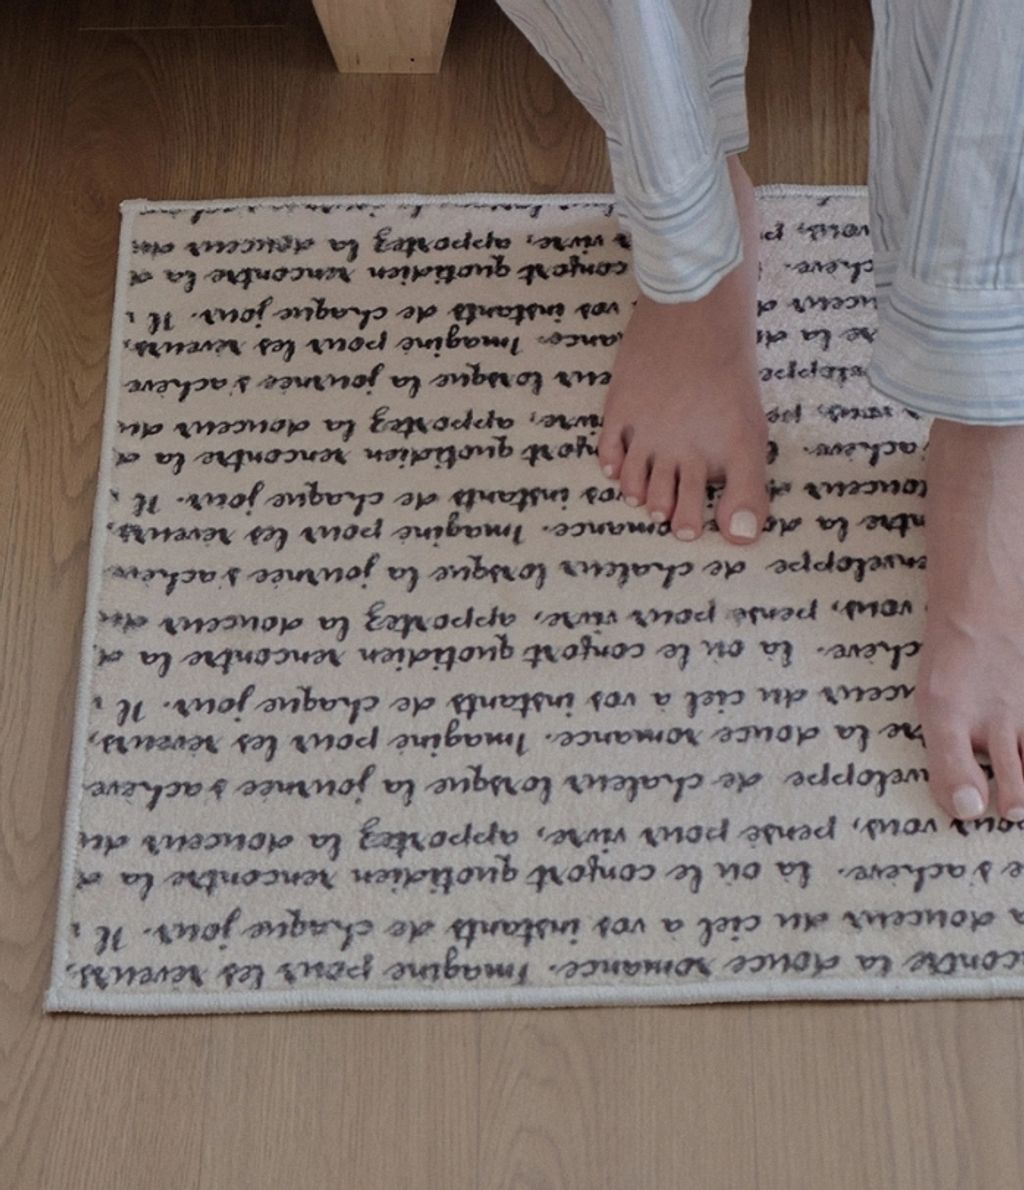 contre la douce romance. Imaginé pour les rêveurs,
douceur du ciel à vos instants de chaque jour. Il
e s'achève. Là où le confort quotidien rencontre la d
pour vous, pensé pour vivre, apportez la douceur du
veloppe de chaleur lorsque la journée s'achève
re la douce romance. Imaginé pour les rêveurs,
uceur du ciel à vos instants de chaque jour. Il
chève. Là où le confort quotidien rencontre la d
vous, pensé pour vivre, apportez la douceur du
enveloppe de chaleur lorsque la journée s'achève
ntre la do omance. Imaginé pour les rêveurs,
douceur d vos instants de chaque jour. Il
achève. confo quotidien rencontre la d
vous, pe viv apportez la douceur du
veloppe eur lorsque la journée s'achève
re la do ance. Imaginé pour les rêveurs,
uceur d vos instants de chaque jour. Il
chève. confort quotidien rencontre la d
vous, p vivre, apportez la douceur du